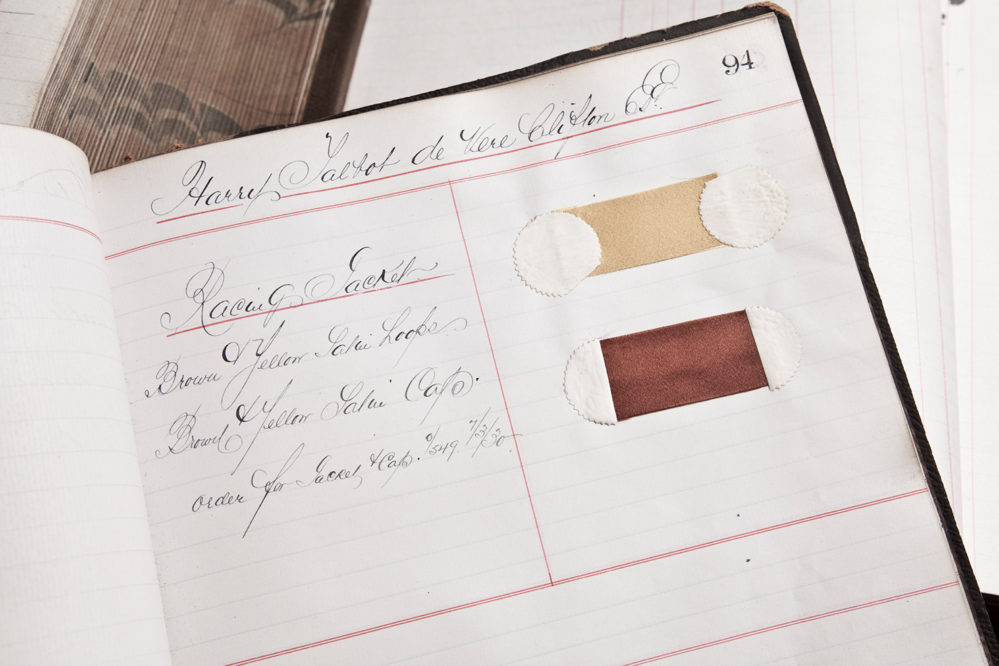 94
Harry Talbot de Vere Clifton Esq.
Racing Jacket
Brown & Yellow Satin Hoops.
Brown & Yellow Satin Cap.
order for Jacket & Cap. 549. 7/3/30.